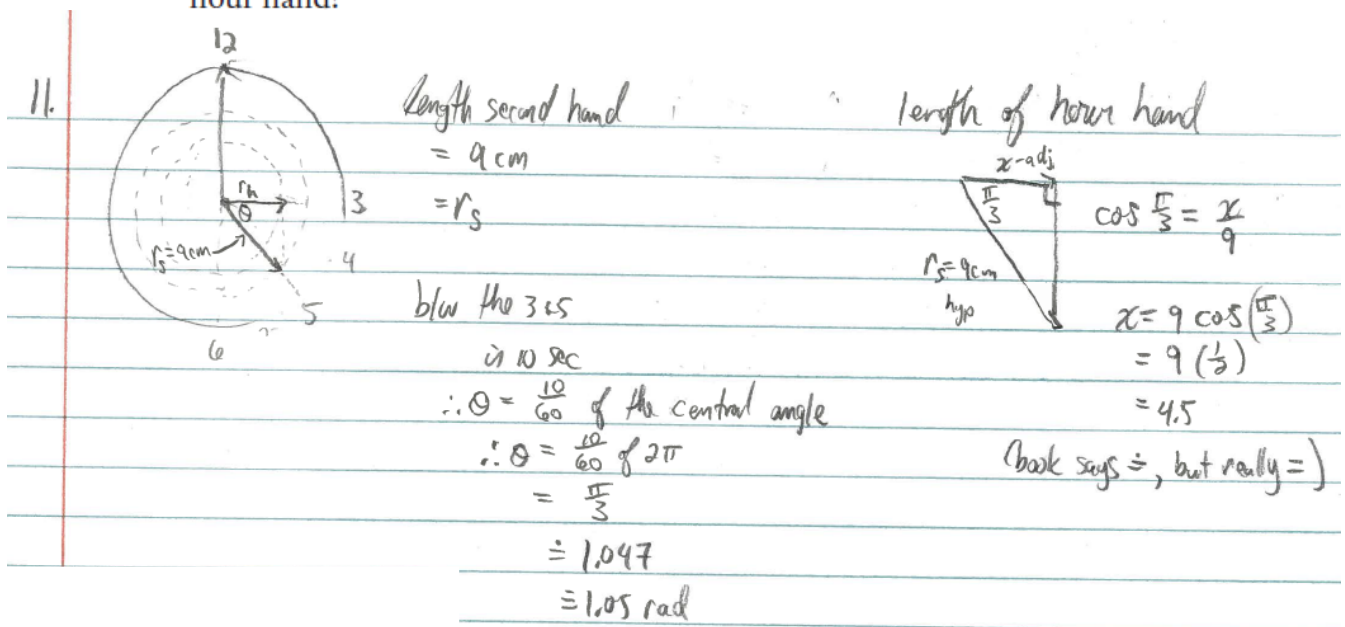 hour hand?
11.
12
3
4
5
6
rₕ
θ
rₛ=9cm
length second hand
= 9 cm
= rₛ
b/w the 3 & 5
is 10 sec
∴ θ = 10/60 of the central angle
∴ θ = 10/60 of 2π
= π/3
≐ 1.047
≐ 1.05 rad
length of hour hand
x-adj
π/3
rₛ=9cm
hyp
cos π/3 = x/9
x = 9 cos(π/3)
= 9 (1/2)
= 4.5
(book says ≐, but really =)